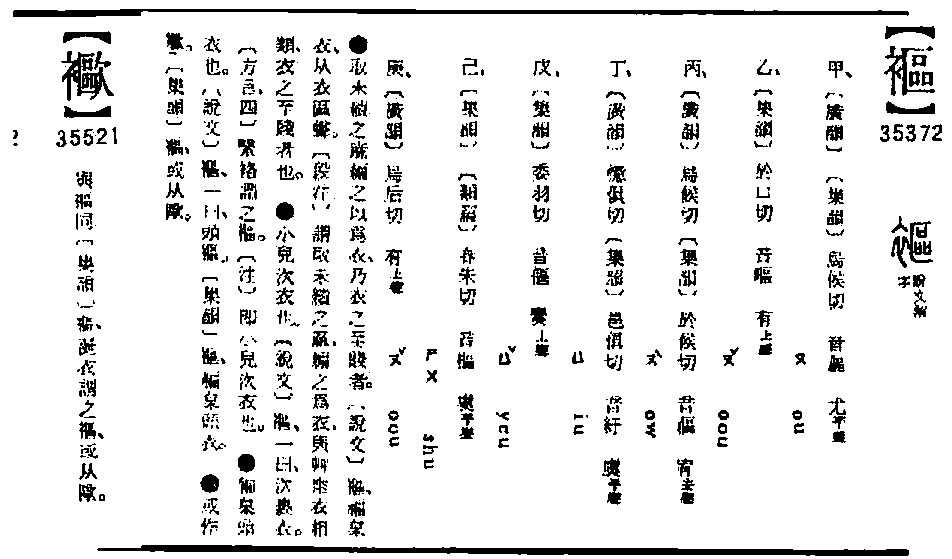 【褔】
35372
說文篆字
甲、〔廣韻〕〔集韻〕烏候切 音謳 尤平聲
ㄡ ou
乙、〔集韻〕於口切 音嘔 有上聲
ㄡˇ oou
丙、〔廣韻〕烏候切〔集韻〕於候切 音傴 宥去聲
ㄡˋ ow
丁、〔廣韻〕憶俱切〔集韻〕邕俱切 音紆 虞平聲
ㄩ iu
戊、〔集韻〕委羽切 音傴 麌上聲
ㄩˇ yeu
己、〔集韻〕〔類篇〕春朱切 音樞 虞平聲
ㄕㄨ shu
庚、〔廣韻〕烏后切 有上聲
ㄡˇ oou
●取未績之麻編之以爲衣、乃衣之至賤者。〔說文〕褔、編枲
衣、从衣區聲。〔段注〕謂取未績之麻編之爲衣、與草雨衣相
類、衣之至賤者也。●小兒次衣也。〔說文〕褔、一曰、次裹衣。
〔方言、四〕緊袼謂之褔。〔注〕卽小兒次衣也。●編枲頭
衣也。〔說文〕褔、一曰、頭褔。〔集韻〕褔、編枲頭衣。●或作
𧞨。〔集韻〕褔、或从歐。
【𧞨】
35521
與褔同〔集韻〕褔、涎衣謂之褔、或从歐。